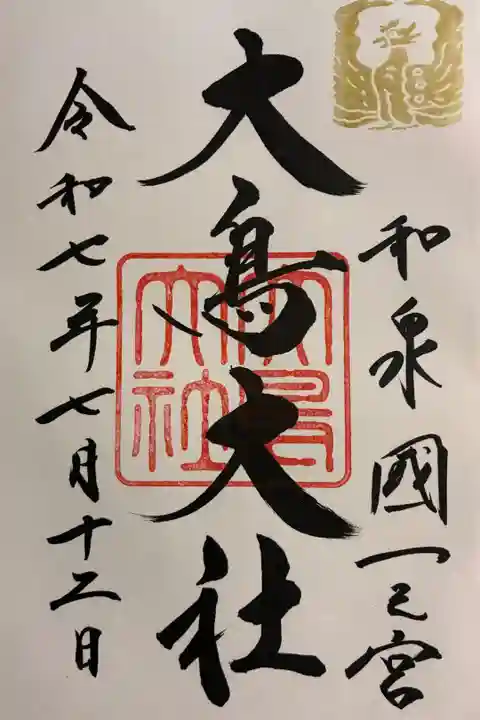 和泉國一之宮
大鳥大社
大鳥
大社
令和七年七月十二日